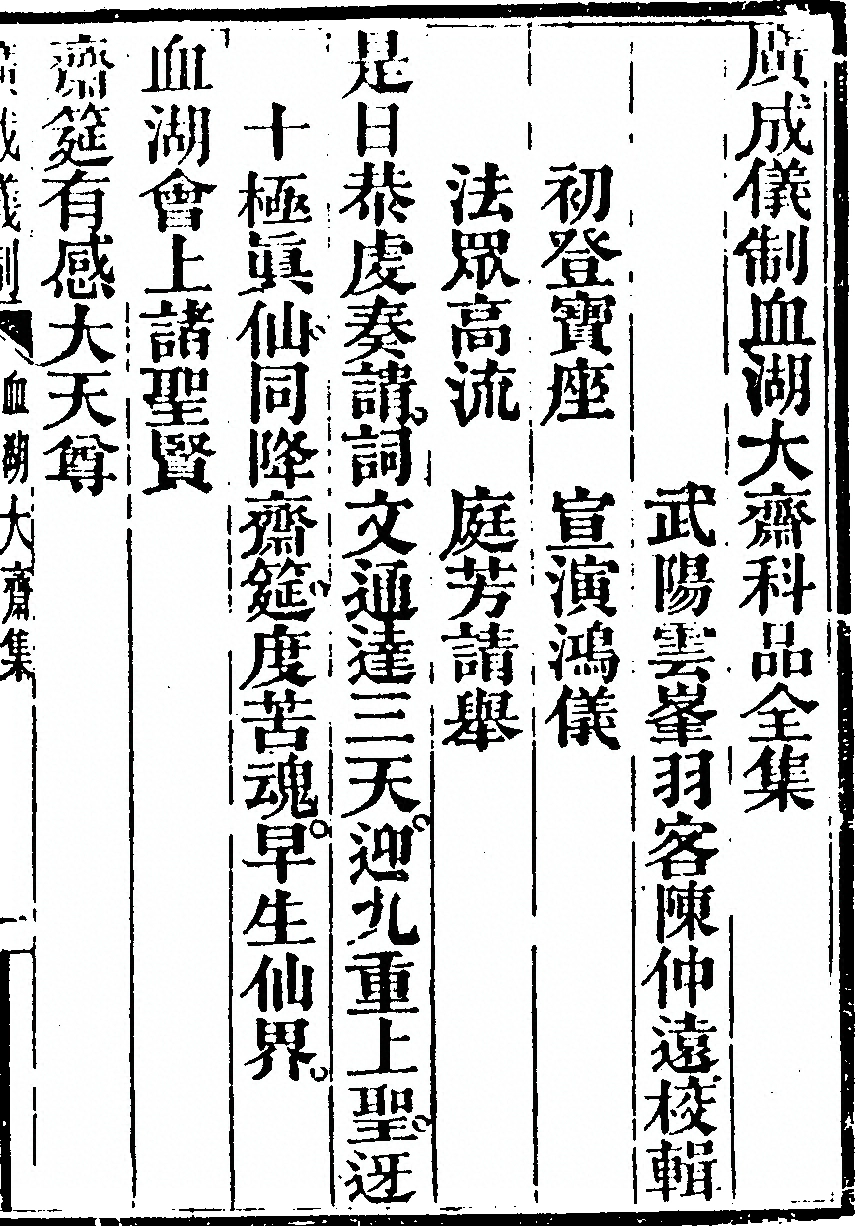 廣成儀制血湖大齋科品全集
武陽雲峯羽客陳仲遠校輯
初登寶座　宣演鴻儀
法眾高流　庭芳請舉
是日恭虔奏請。詞文通達三天。迎九重上聖。迓
十極眞仙。同降齋筵。度苦魂。早生仙界。
血湖會上諸聖賢
齋筵有感大天尊
廣成儀制　血湖大齋集　一